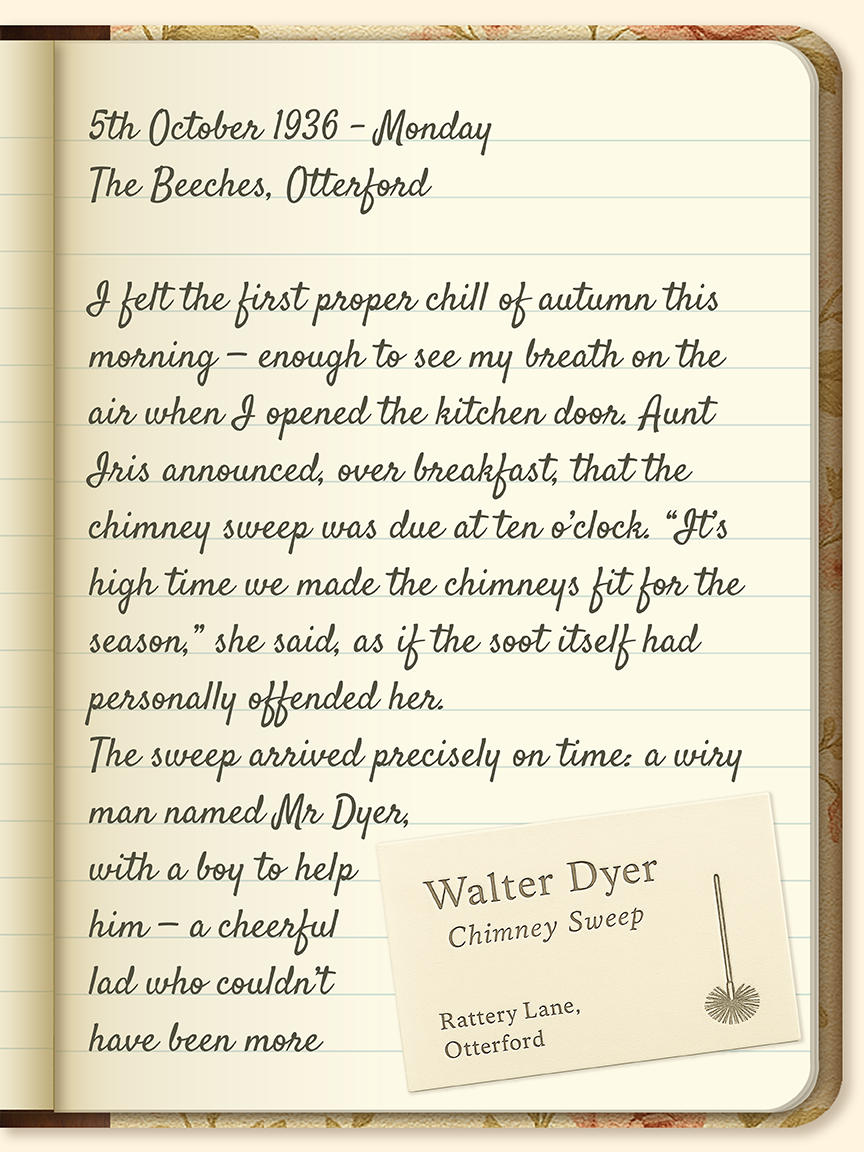 5th October 1936 – Monday
The Beeches, Otterford
I felt the first proper chill of autumn this
morning – enough to see my breath on the
air when I opened the kitchen door. Aunt
Iris announced, over breakfast, that the
chimney sweep was due at ten o’clock. “It’s
high time we made the chimneys fit for the
season,” she said, as if the soot itself had
personally offended her.
The sweep arrived precisely on time: a wiry
man named Mr Dyer,
with a boy to help
him – a cheerful
lad who couldn’t
have been more
Walter Dyer
Chimney Sweep
Rattery Lane,
Otterford